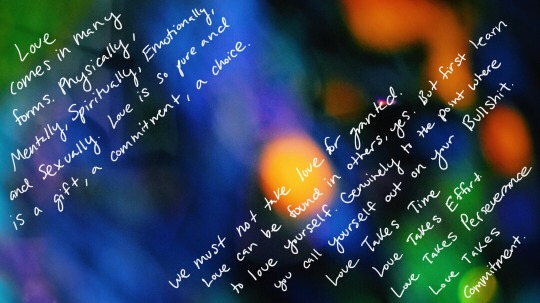 Love
comes in many
forms. Physically,
Mentally, Spiritually, Emotionally,
and Sexually. Love is so pure and
is a gift, a commitment, a choice.
we must not take love for granted.
Love can be found in others, yes. But first learn
to love yourself. Genuinely to the point where
you call yourself out on your Bullshit.
Love Takes Time
Love Takes Effort
Love Takes Perseverance
Love Takes
Commitment.